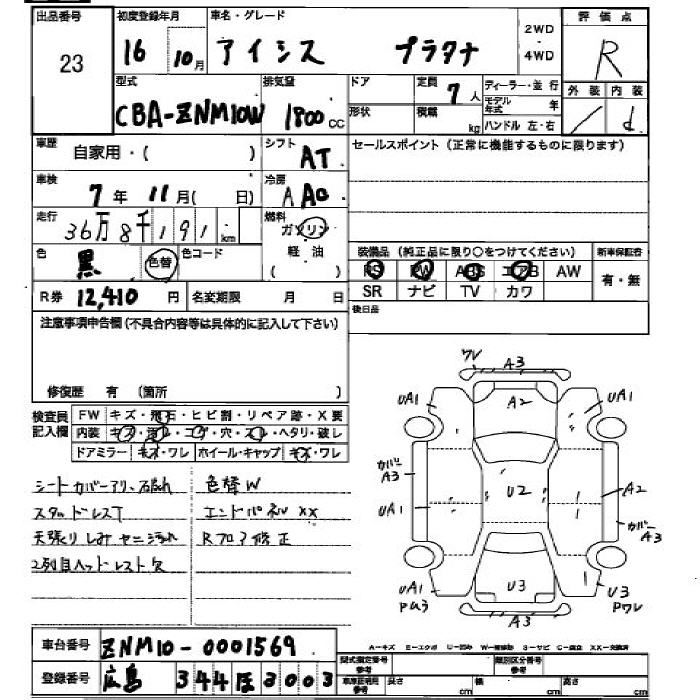 出品番号 初度登録年月 車名・グレード 評価点
23 16 10月 アイシス プラタナ 2WD 4WD R
型式 排気量 ドア 定員 7人 ディーラー・並行 外装 内装
CBA-ZNM10W 1800cc 形状 積載 kg モデル年式 年 ハンドル 左・右 / d
車歴 自家用・( ) シフト AT セールスポイント (正常に機能するものに限ります)
車検 7年 11月( 日) 冷房 A AC
走行 36万8千191km 燃料 ガソリン
色 黒 色替 色コード 軽油 ( ) 装備品 (純正品に限り○をつけてください) 新車保証書
PS PW ABS エアB AW 有・無
R券 12,410円 名変期限 月 日 SR ナビ TV カワ
注意事項申告欄(不具合内容等は具体的に記入して下さい) 後日品
修復歴 有 (箇所 )
検査員記入欄 FW キズ・飛石・ヒビ割・リペア跡・X要
内装 キズ・汚レ・コゲ・穴・スレ・ヘタリ・破レ
ドアミラー キズ・ワレ ホイール・キャップ キズ・ワレ
シートカバー 色替W
スタッドレスT エンドパネルXX
天張りしみ ヤニ汚れ Rフロア修正
2列目ヘッドレスト欠
ワレ A3
UA1 A2 UA1
カバー A3 UA1 U2 A2 カバー A3
UA1 U3 U3
A3 Pワレ
A-キズ E-エクボ U-凹み W-補修跡 S-サビ C-腐食 XX-交換済
車台番号 ZNM10-0001569
登録番号 広島 344 ほ 3003
型式指定番号 類別区分番号
車庫証明用参考 長さ cm 幅 cm 高さ cm